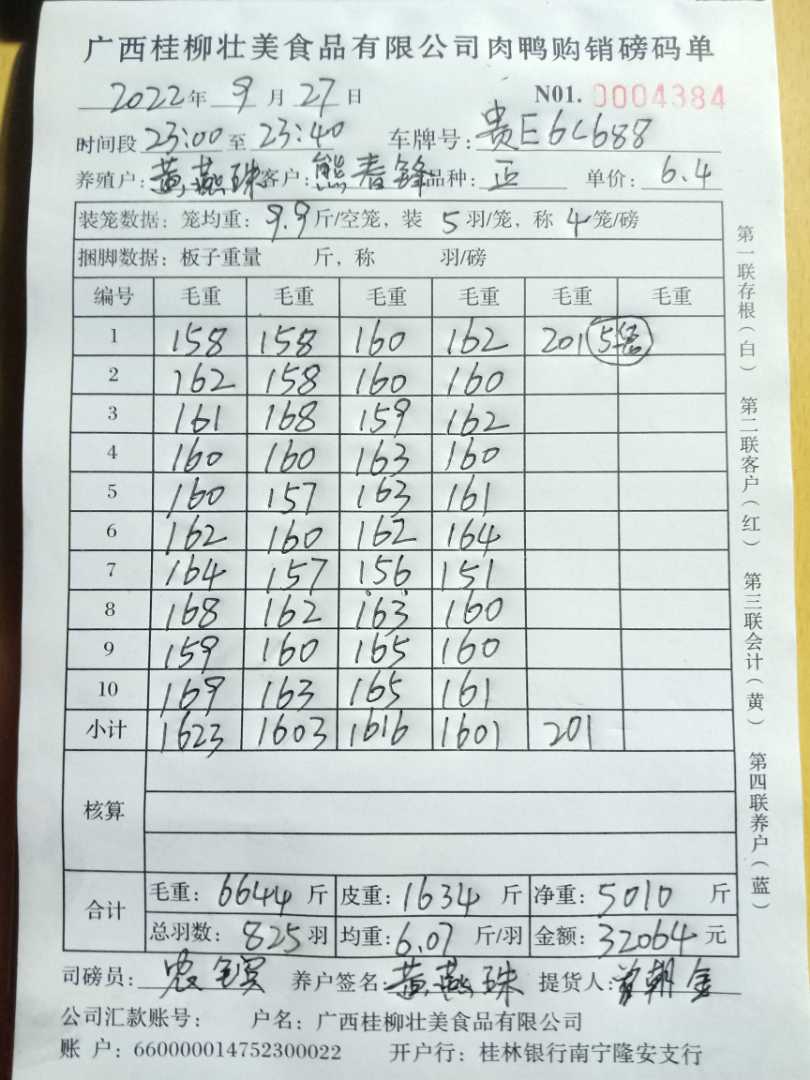 广西桂柳壮美食品有限公司肉鸭购销磅码单
2022年 9 月 27 日 N01. 0004384
时间段 23:00 至 23:40 车牌号: 贵E6C688
养殖户: 黄燕珠 客户: 熊春锋 品种: 正 单价: 6.4
装笼数据: 笼均重: 9.9 斤/空笼, 装 5 羽/笼, 称 4 笼/磅
捆脚数据: 板子重量 斤, 称 羽/磅
编号 毛重 毛重 毛重 毛重 毛重 毛重
1 158 158 160 162 201 5笼
2 162 158 160 160
3 161 168 159 162
4 160 160 163 160
5 160 157 163 161
6 162 160 162 164
7 164 157 156 151
8 168 162 163 160
9 159 160 165 160
10 169 163 165 161
小计 1623 1603 1616 1601 201
核算
合计 毛重: 6644 斤 皮重: 1634 斤 净重: 5010 斤
总羽数: 825 羽 均重: 6.07 斤/羽 金额: 32064 元
司磅员: 农 养户签名: 黄燕珠 提货人: 朝金
公司汇款账号: 户名: 广西桂柳壮美食品有限公司
账 户: 660000014752300022 开户行: 桂林银行南宁隆安支行
第一联存根(白) 第二联客户(红) 第三联会计(黄) 第四联养户(蓝)